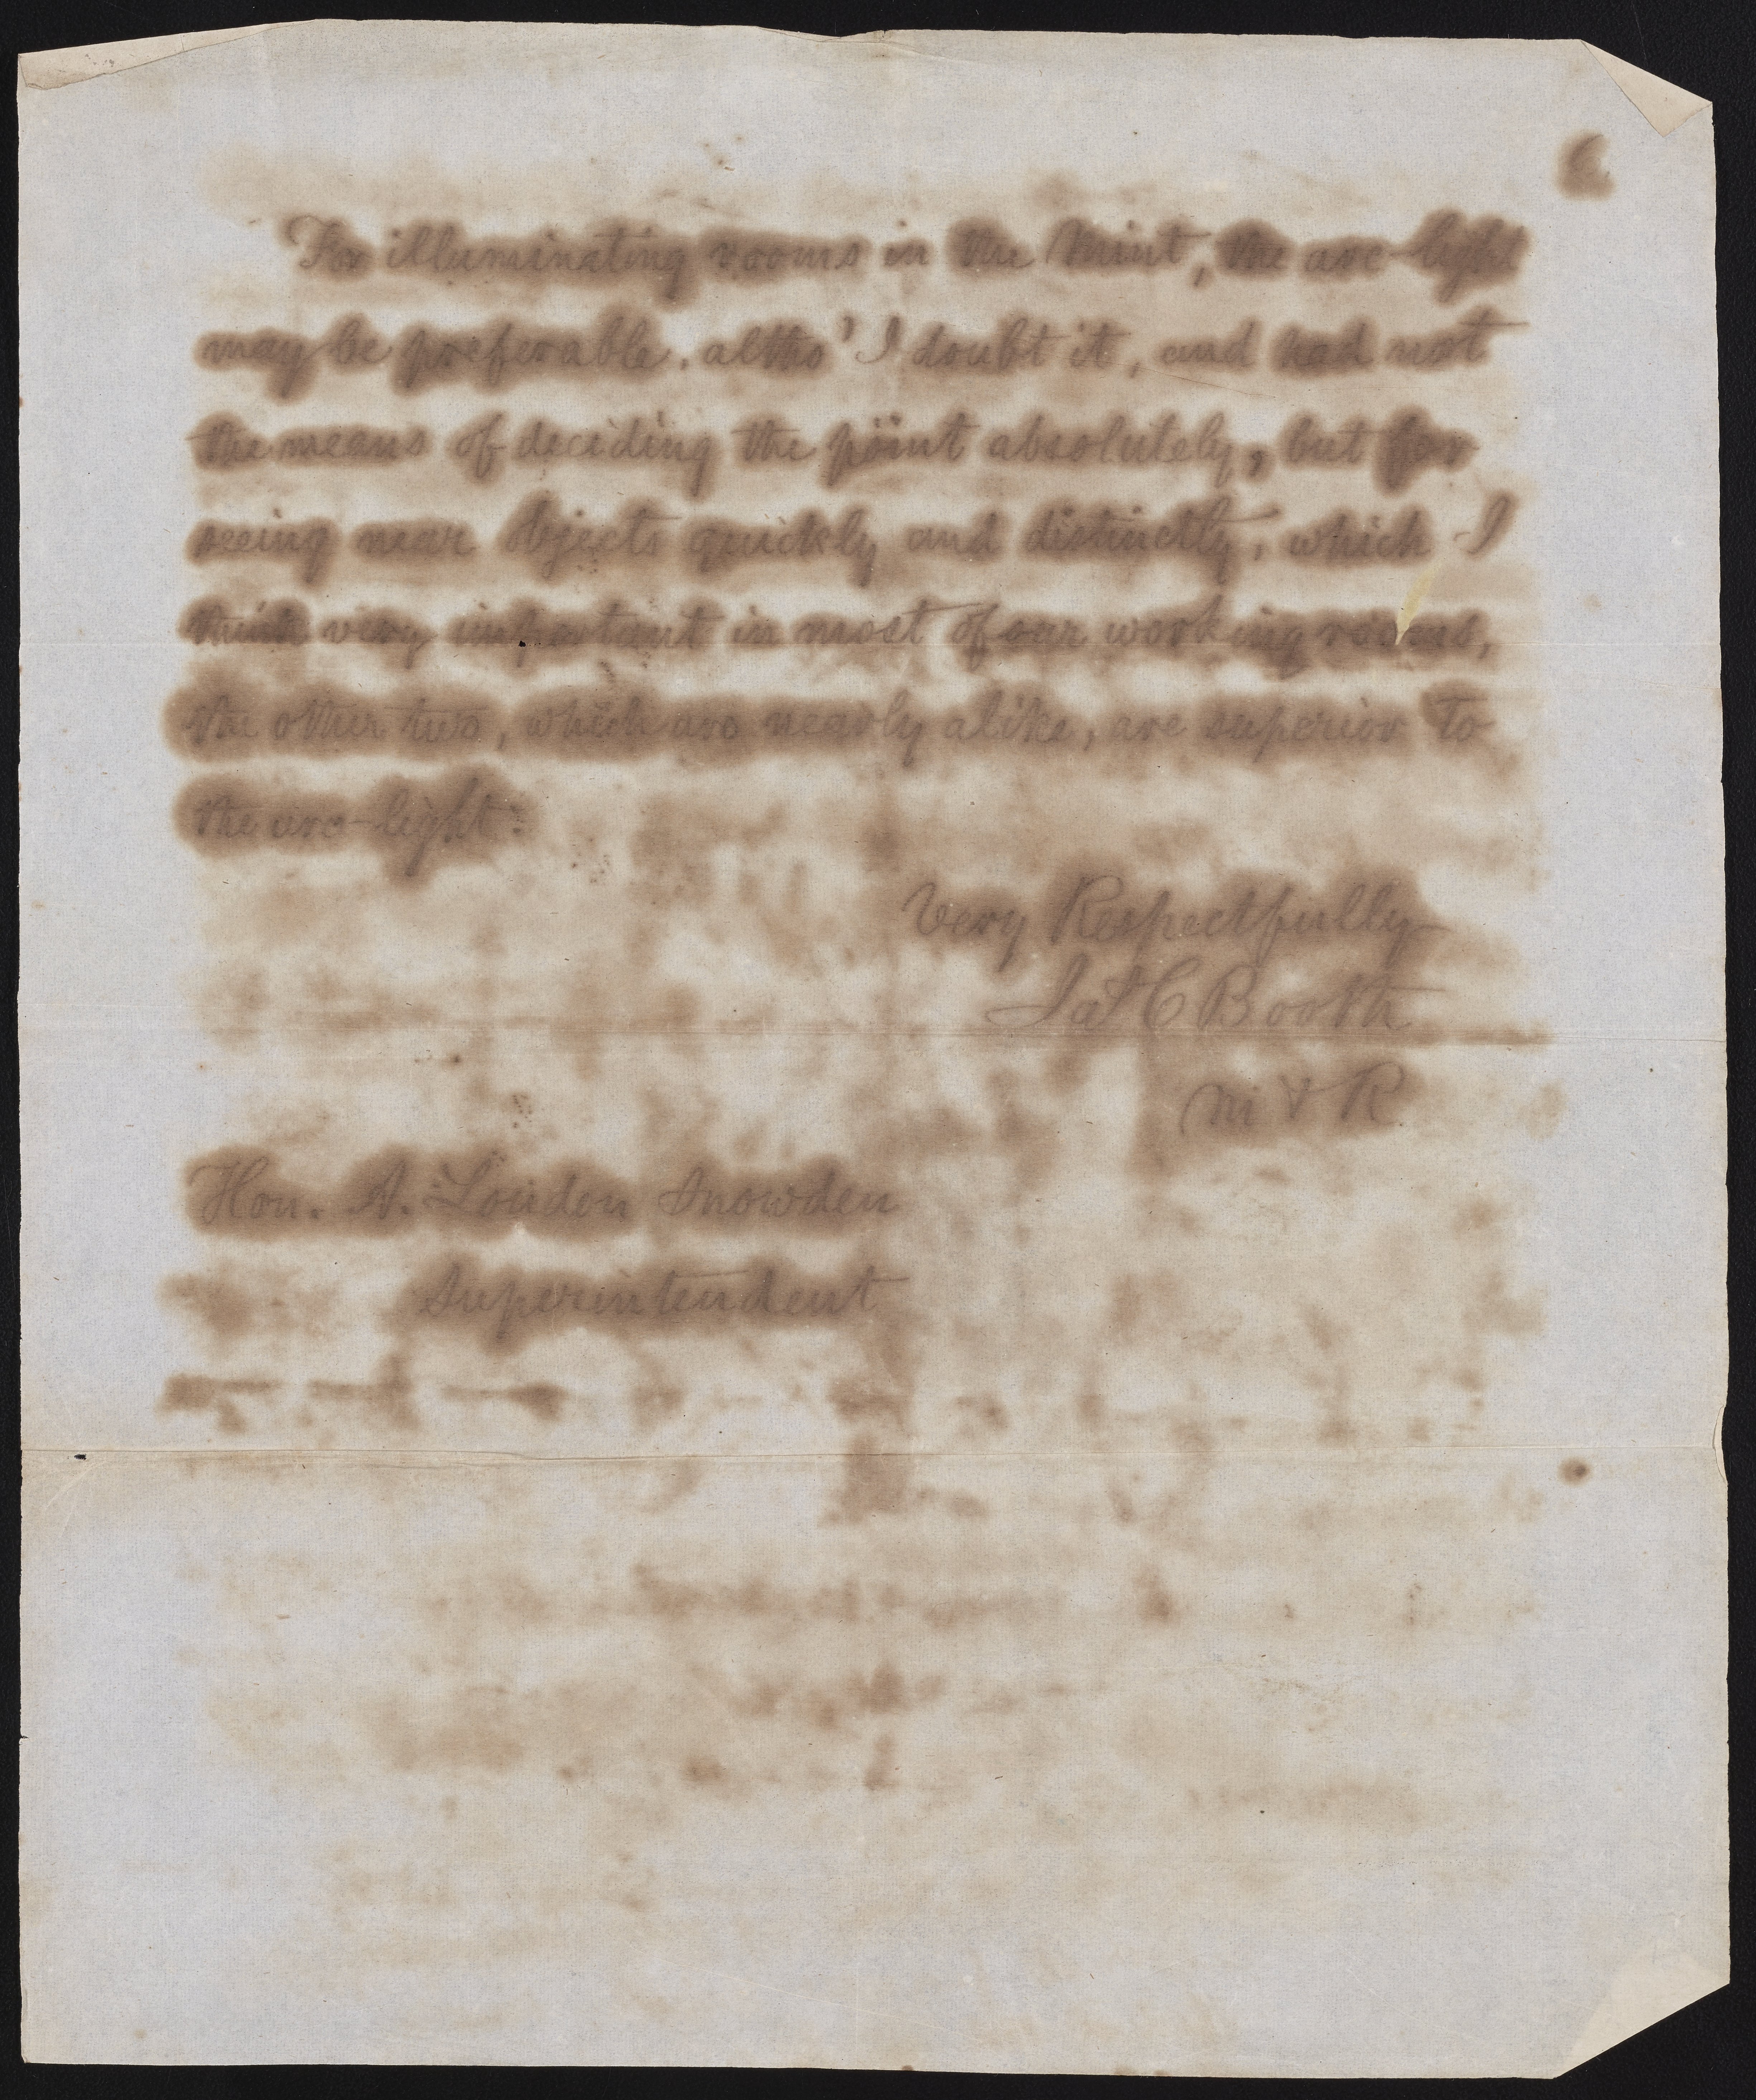 6
For illuminating rooms in the Mint, the arc-light
may be preferable, altho' I doubt it, and had not
the means of deciding the point absolutely, but for
seeing near objects quickly and distinctly, which I
think very important in most of our working rooms,
the other two, which are nearly alike, are superior to
the arc-light.
Very Respectfully
Jas C Booth
M & R
Hon. A. Loudon Snowden
Superintendent